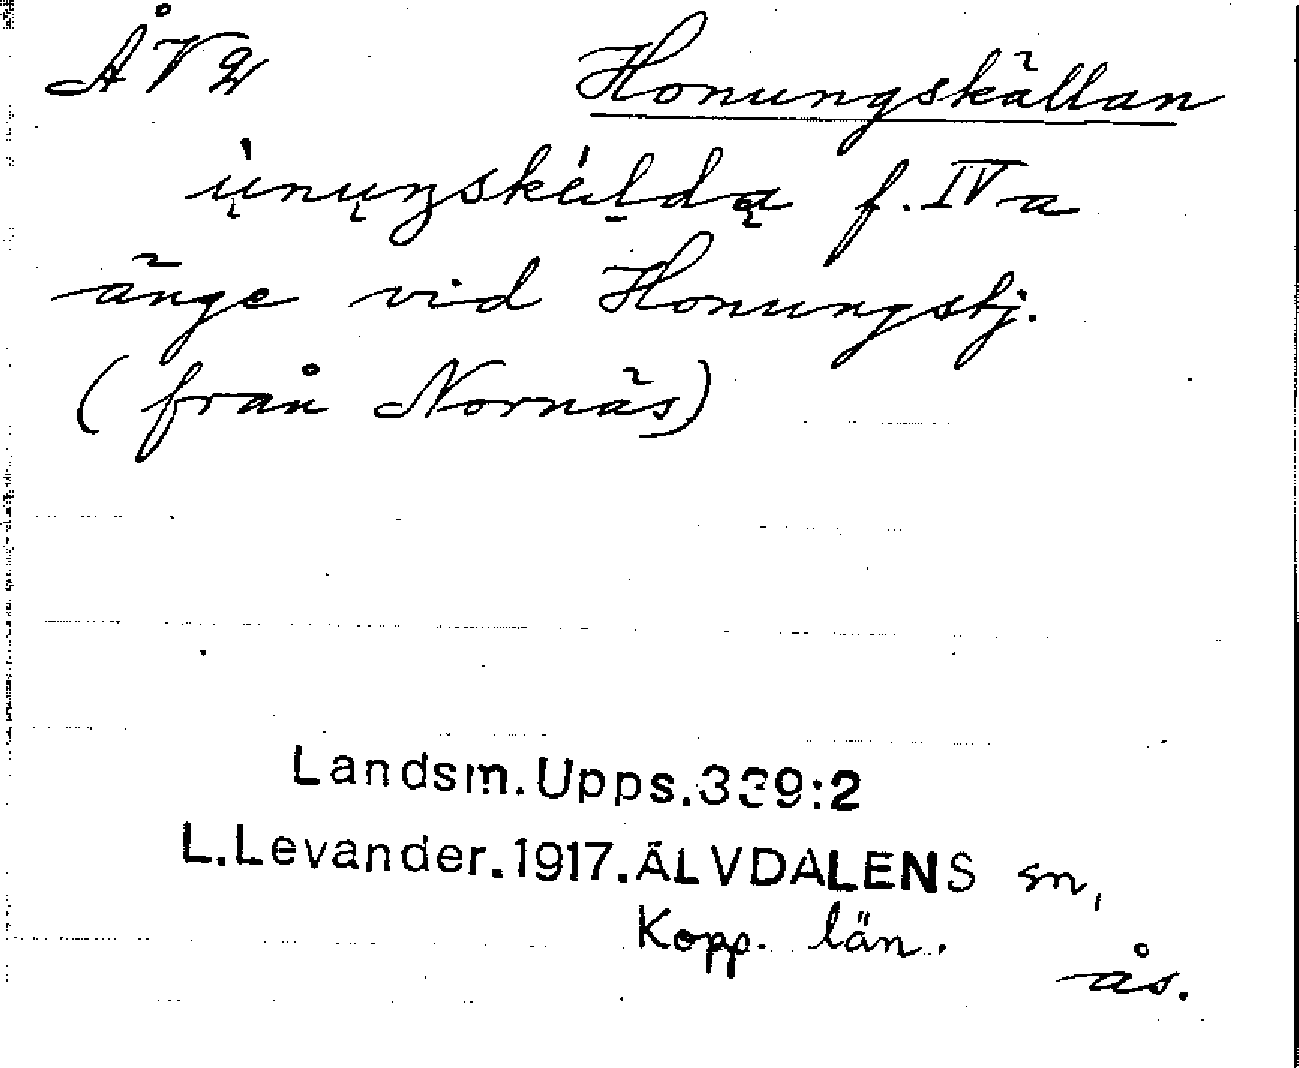 ÅV2 Honungskällan
ų̀nųŋskéldą f. IV a
änge vid Honungstj.
(från Nornäs)
Landsm.Upps.339:2
L.Levander.1917.ÄLVDALENS sn,
Kopp. län.
ås.